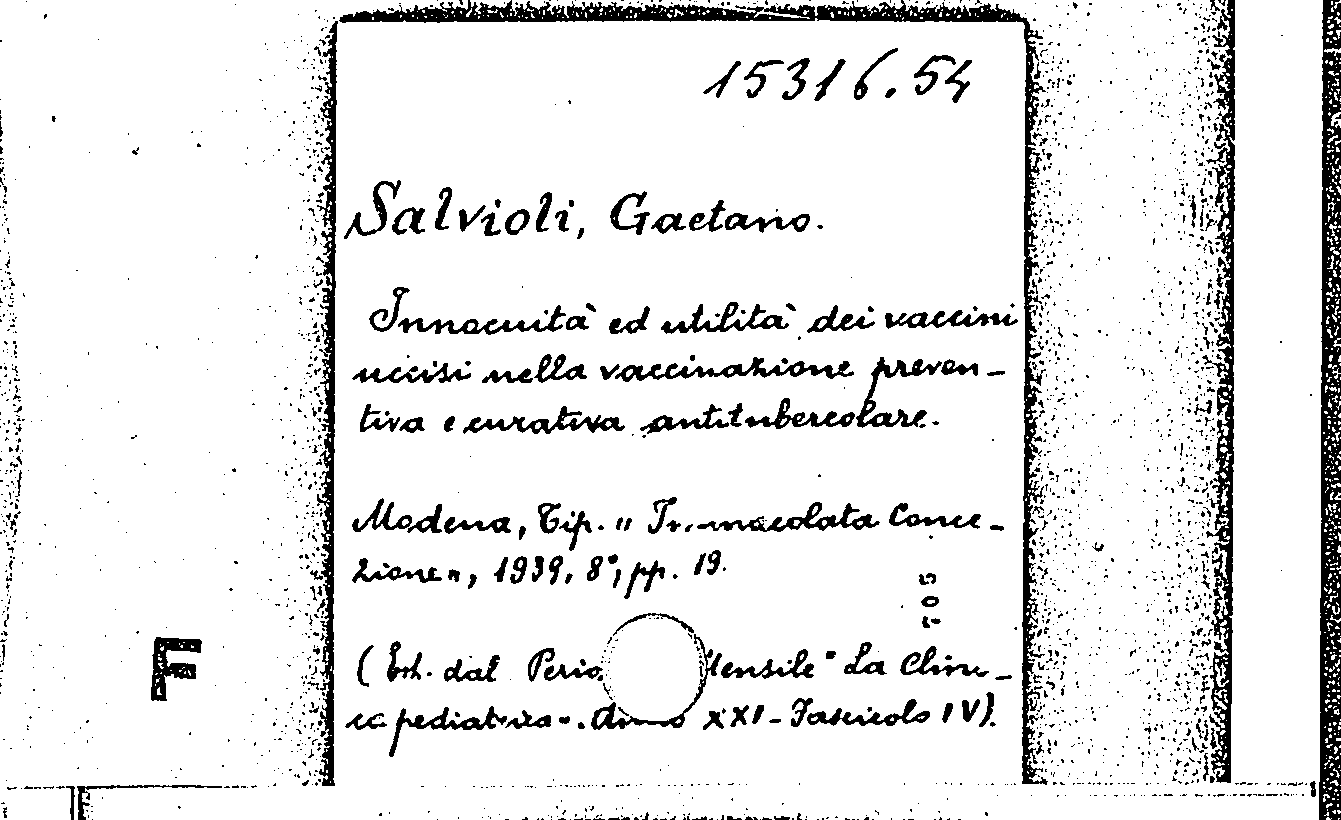 15316.54
Salvioli, Gaetano.
Innocuità ed utilità dei vaccini
uccisi nella vaccinazione preven-
tiva e curativa antitubercolare.
Modena, Tip. "Immacolata Conce-
zione", 1939, 8°, pp. 19.
705
(Est. dal Perio ensile "La Clini-
ca pediatrica". Anno XXI - Fascicolo IV).
F